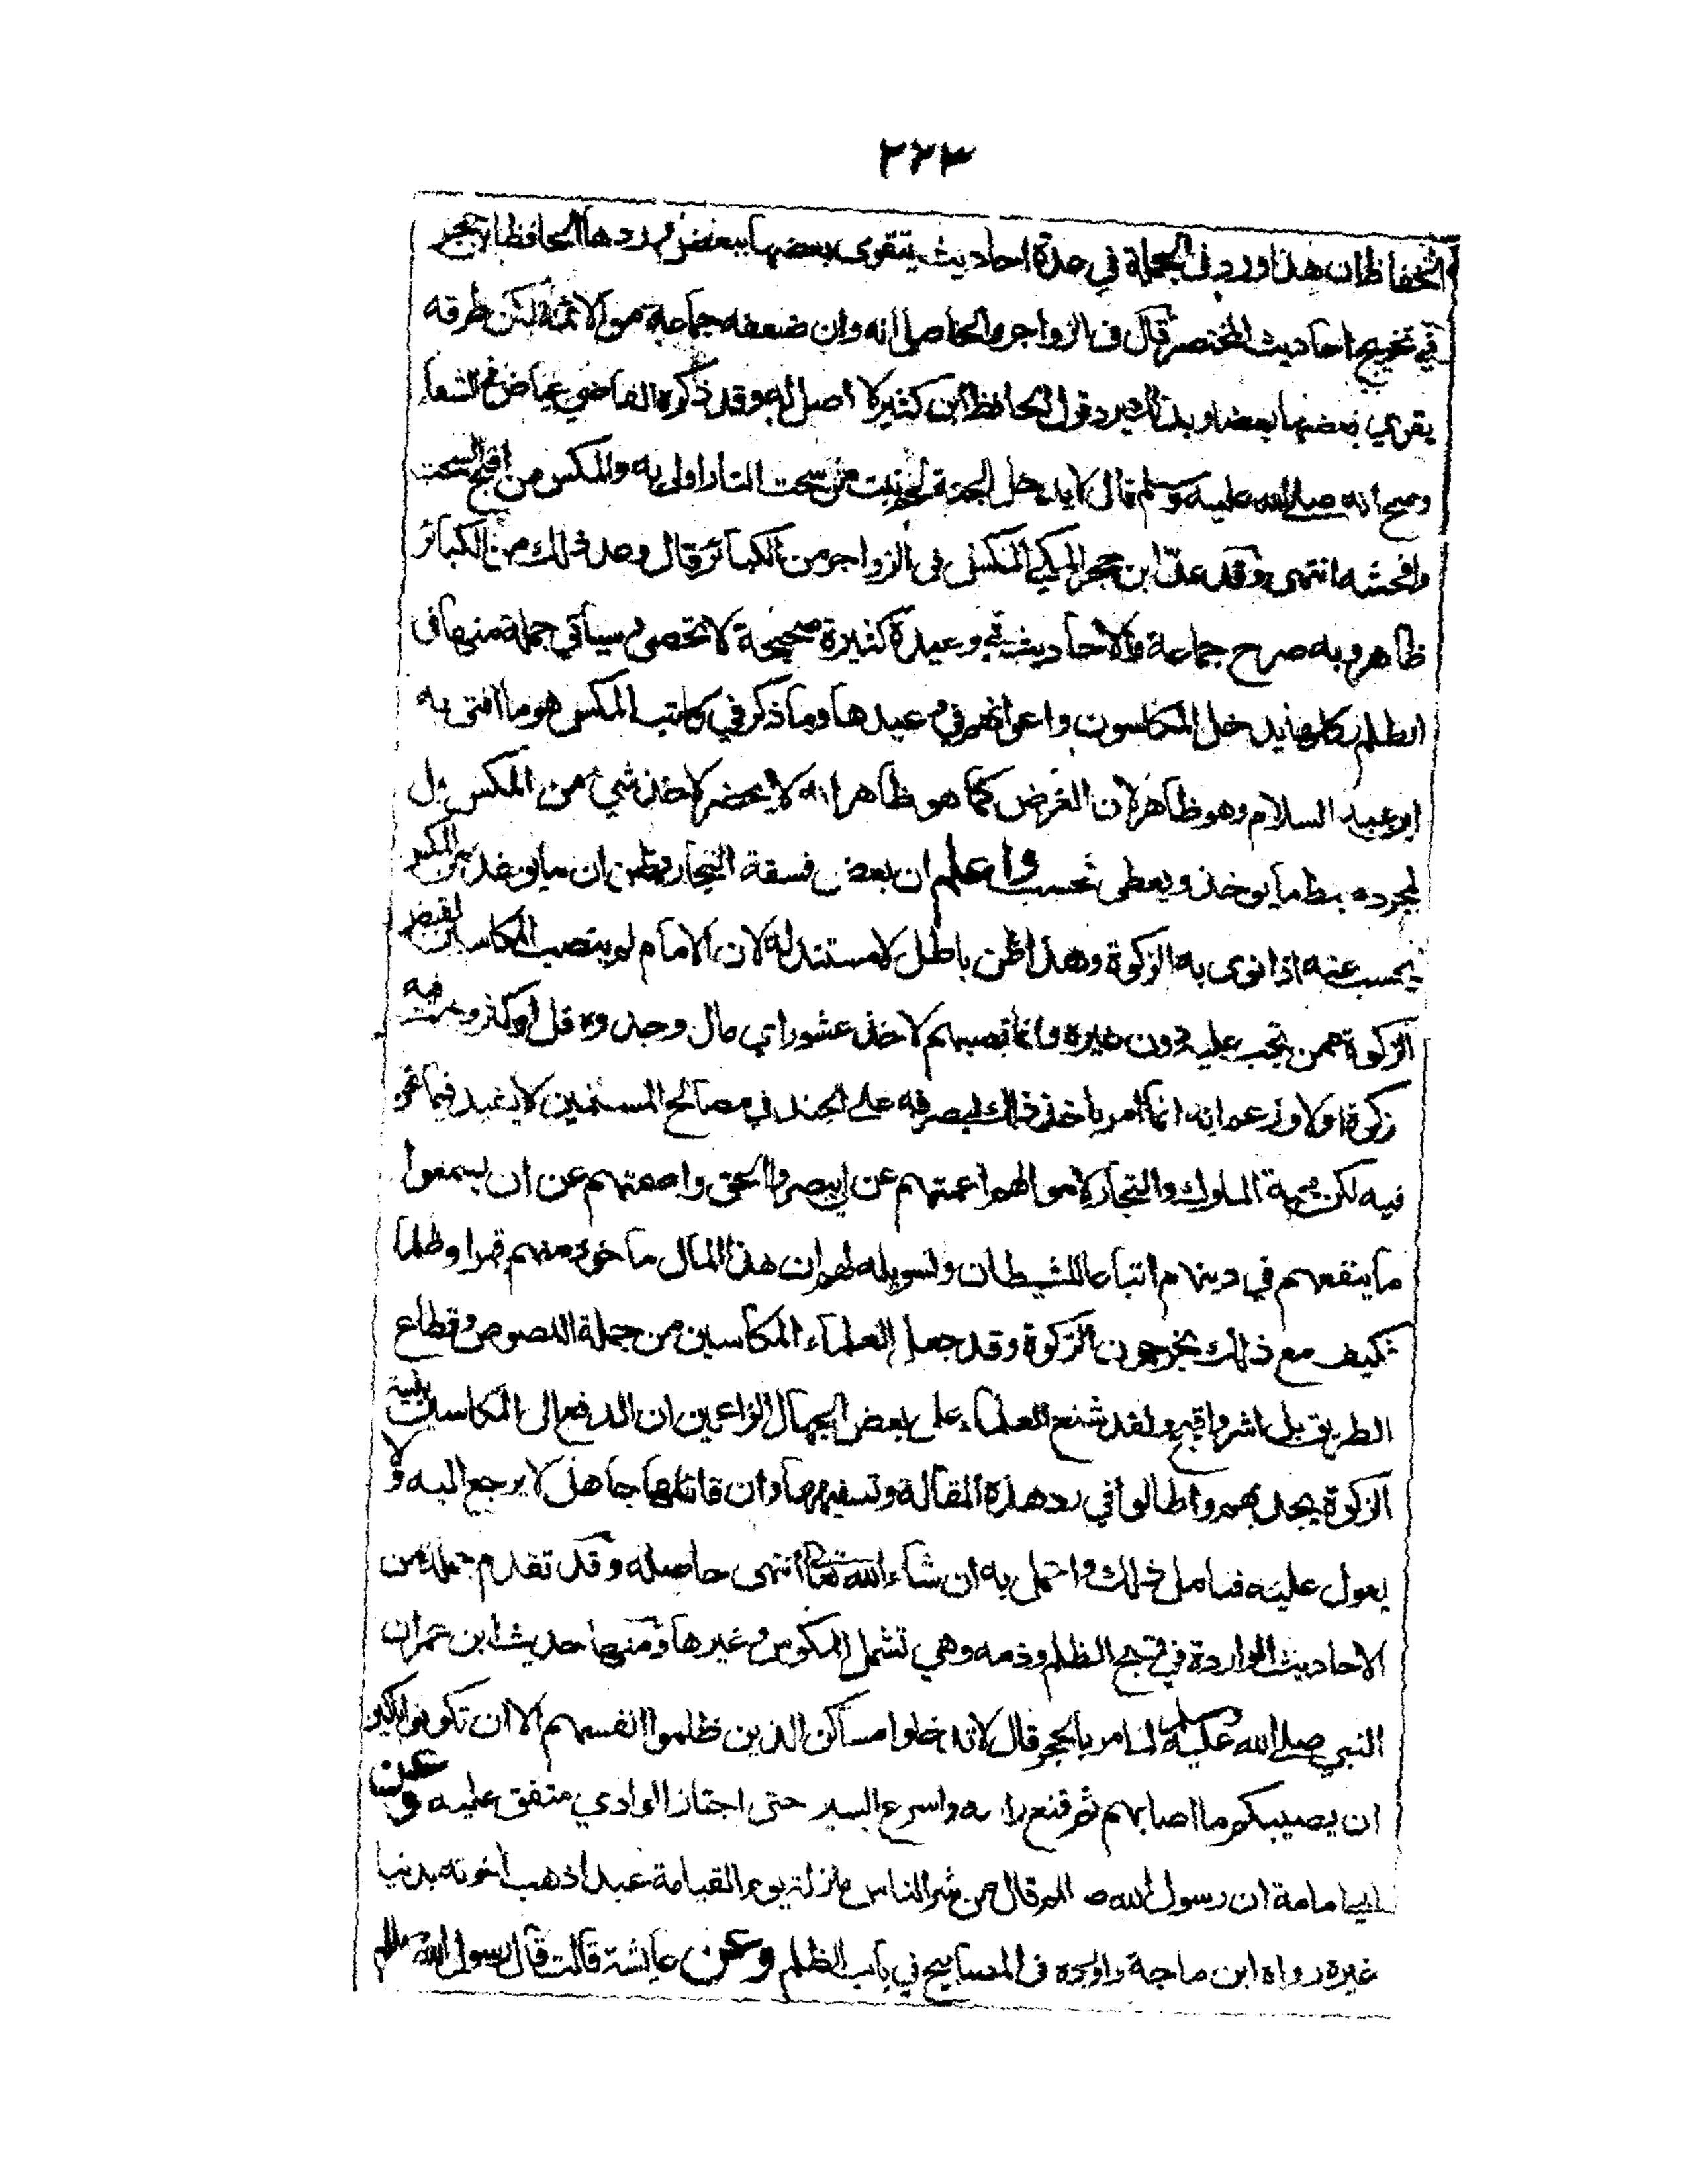 ٢٢٣
الحفاظ ان هذا ورد في الجملة في عدة احاديث يتقوى بعضها ببعض اوردها الحافظ ابن حجر
في تخريج احاديث المختصر قال في الزواجر والحاصل انه وان ضعفه جماعة من الائمة لكن طرقه
يقوي بعضها بعضا وبذلك يرد قول الحافظ ابن كثير لا اصل له وقد ذكره القاضي عياض في الشفاء
وصح انه صلى الله عليه وسلم قال لا يدخل الجنة لحم نبت من سحت النار اولى به والمكس من اقبح السحت
وافحشه انتهى وقد عدّ ابن حجر المكي المكس في الزواجر من الكبائر قال وعد ذلك من الكبائر
ظاهر وبه صرح جماعة والاحاديث في وعيده كثيرة صحيحة لا تحصى وسيأتي جملة منها في
الظلم كلها يدخل المكاسون واعوانهم في وعيدها وما ذكر في كاتب المكس هو ما افتى به
ابن عبد السلام وهو ظاهر لان الغرض كما هو ظاهر انه لا يحضر لاخذ شيء من المكس بل
لمجرد ضبط ما يوخذ ويعطى فحسب واعلم ان بعض فسقة التجار يظن ان ما يوخذ من المكس
يحسب عنه اذا نوى به الزكوة وهذا ظن باطل لا مستند له لان الامام لم ينصب المكاسين لقبض
الزكوة ممن تجب عليه دون غيره وانما نصبهم لاخذ عشور اي مال وجدوه قل او كثر وجبت فيه
زكوة اولا وزعم انه انما امر باخذ ذلك ليصرفه على الجند في مصالح المسلمين لا يفيد فيما نحن
فيه لكن محبة الملوك والتجار لاموالهم اعمتهم عن ان يبصروا الحق واصمتهم عن ان يسمعوا
ما ينفعهم في دينهم اتباعا للشيطان وتسويله لهم ان هذا المال ماخوذ منهم قهرا وظلما
فكيف مع ذلك يخرجون الزكوة وقد جعل العلماء المكاسين من جملة اللصوص وقطاع
الطريق بل اشر واقبح ولقد شنع العلماء على بعض الجهال الزاعمين ان الدفع الى المكاسين بنية
الزكوة يجديهم واطالوا في رد هذه المقالة وتسفيهها وان قائلها جاهل لا يرجع اليه ولا
يعول عليه فتامل ذلك واعمل به ان شاء الله تعالى انتهى حاصله وقد تقدم جملة من
الاحاديث الواردة في قبح الظلم وذمه وهي تشمل المكوس وغيرها ومنها حديث ابن عمر ان
النبي صلى الله عليه وسلم لما مر بالحجر قال لا تدخلوا مساكن الذين ظلموا انفسهم الا ان تكونوا باكين
ان يصيبكم ما اصابهم ثم قنع راسه واسرع السير حتى اجتاز الوادي متفق عليه وعن
ابي امامة ان رسول الله صلعم قال من شر الناس منزلة يوم القيامة عبد اذهب اخرته بدنيا
غيره رواه ابن ماجة واورده في المصابيح في باب الظلم وعن عايشة قالت قال رسول الله صلعم